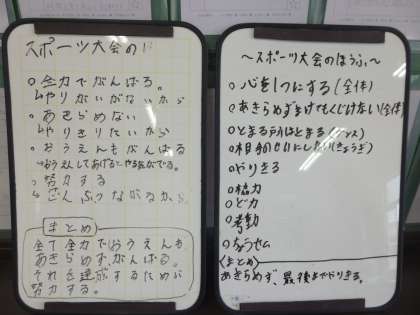 スポーツ大会の
○全力でがんばる。
↳やりがいがないから
○あきらめない
↳やりきりたいから
○おうえんもがんばる
↳おうえんしてあげるとやる気がでる。
○努力する
まとめ
全て全力でおうえんも
あきらめず、がんばる。
それを達成するために
努力する。
～スポーツ大会のほうふ～
○心を1つにする(全体)
○あきらめずまけてもくじけない(全体)
○とまる
○相手のせいにしない
○やりきる
○協力
○ど力
○考動
○ちょうせん
(まとめ)
あきらめず、最後までやりきる。